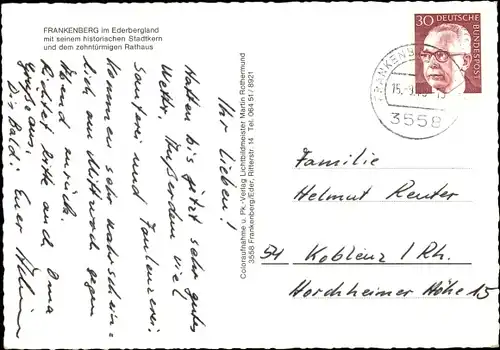 FRANKENBERG im Ederbergland
mit seinem historischen Stadtkern
und dem zehntürmigen Rathaus
Ihr Lieben!
Hatten bis jetzt sehr gutes
Wetter. Außerdem viel
Sauferei und Faulenzerei.
Kommen sehr wahrschein-
lich am Mittwoch gegen
Abend zurück.
Richtet bitte auch Oma
Grüße aus.
Bis Bald! Euer
Coloraufnahme u. Pk.-Verlag Lichtbildmeister Martin Rothermund
3558 Frankenberg/Eder, Ritterstr. 14 Tel. 064 51 / 8921
30 DEUTSCHE
BUNDESPOST
FRANKENBERG
3558
Familie
Helmut Reuter
54 Koblenz / Rh.
Horchheimer Höhe 15